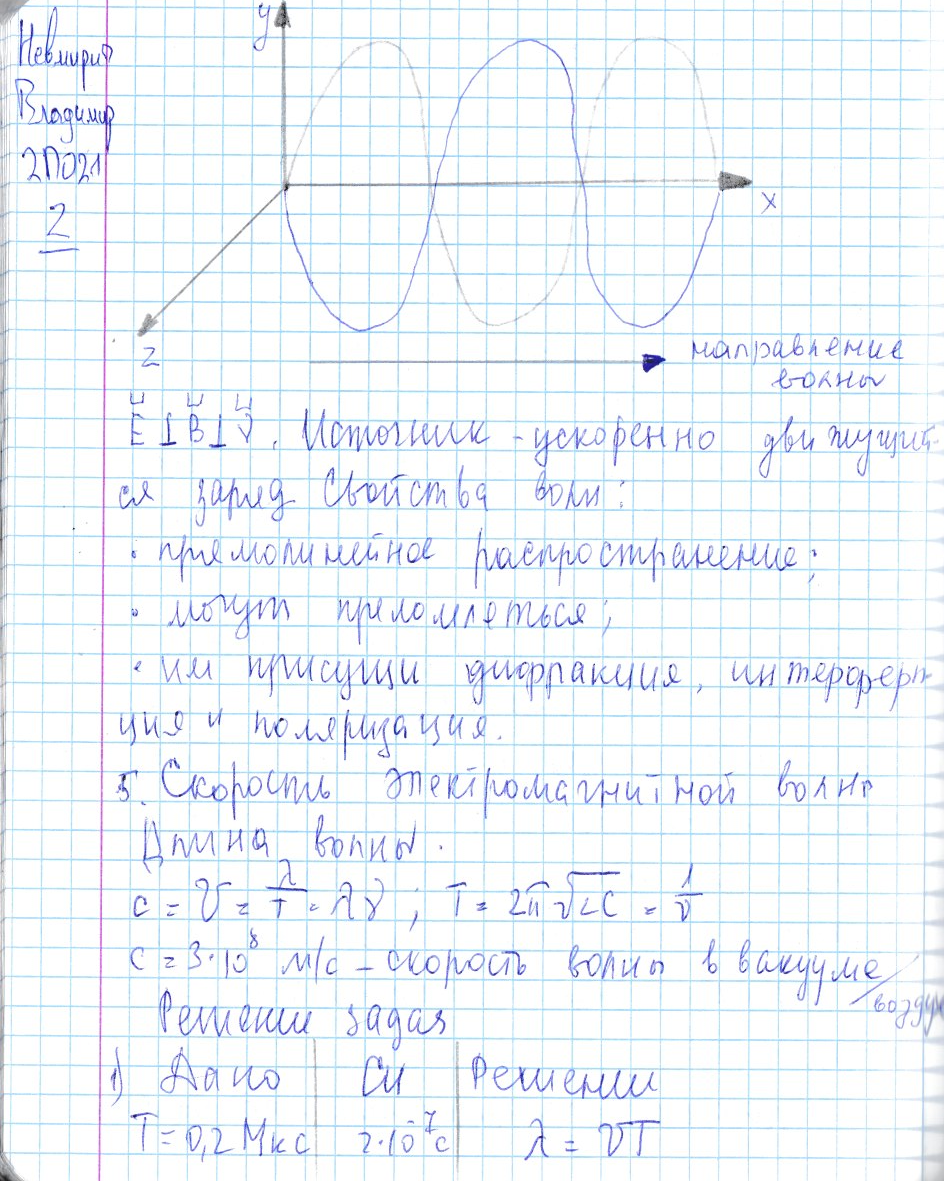 Невмирит
Владимир
2ПО21
2
y
x
z
направление
волны
E⊥B⊥V. Источник - ускоренно движущий-
ся заряд Свойства волн:
• прямолинейное распространение;
• могут преломляться;
• им присущи дифракция, интерферен
ция и поляризация.
5. Скорость электромагнитной волны
Длина волны.
c = υ = λ/T = λν ; T = 2π√LC = 1/ν
c = 3·10⁸ м/с - скорость волны в вакууме/
Решение задач
1) Дано | Си | Решении
T = 0,2 Мкс | 2·10⁻⁷с | λ = υT